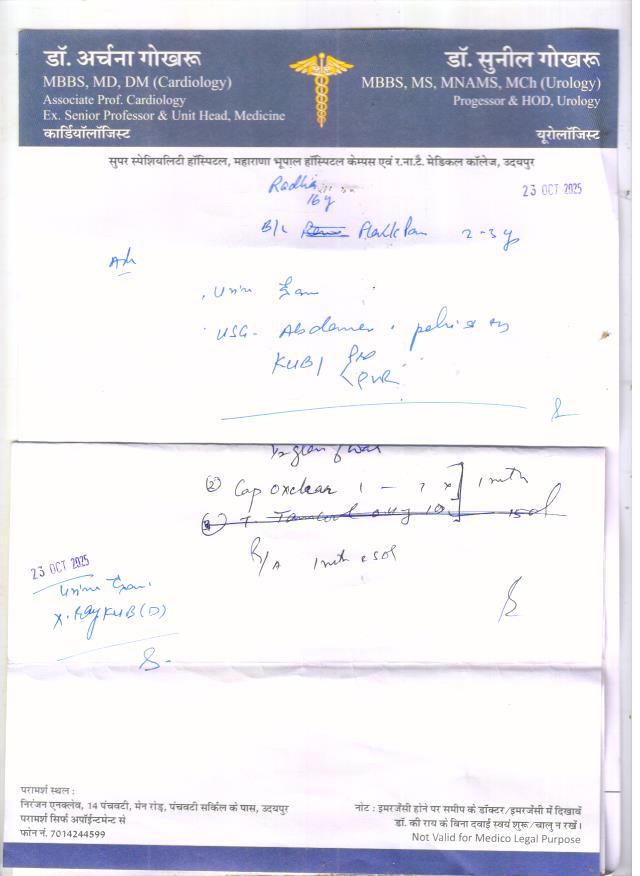 डॉ. अर्चना गोखरू
MBBS, MD, DM (Cardiology)
Associate Prof. Cardiology
Ex. Senior Professor & Unit Head, Medicine
कार्डियॉलॉजिस्ट
डॉ. सुनील गोखरू
MBBS, MS, MNAMS, MCh (Urology)
Progessor & HOD, Urology
यूरोलॉजिस्ट
सुपर स्पेशियलिटी हॉस्पिटल, महाराणा भूपाल हॉस्पिटल केम्पस एवं र.ना.टै. मेडिकल कॉलेज, उदयपुर
Radha
16 y
23 OCT 2025
B/L 2-3 y
Adv
USG- Abdomen
KUB
PVR
(2) Cap 1 mth
R/A 1 mth
23 OCT 2025
X-Ray KUB (D)
परामर्श स्थल :
निरंजन एनक्लेव, 14 पंचवटी, मेन रोड़, पंचवटी सर्किल के पास, उदयपुर
परामर्श सिर्फ अपॉईन्टमेन्ट से
फोन नं. 7014244599
नोट : इमरजेंसी होने पर समीप के डॉक्टर/इमरजेंसी में दिखावें
डॉ. की राय के बिना दवाई स्वयं शुरू/चालु न रखें।
Not Valid for Medico Legal Purpose